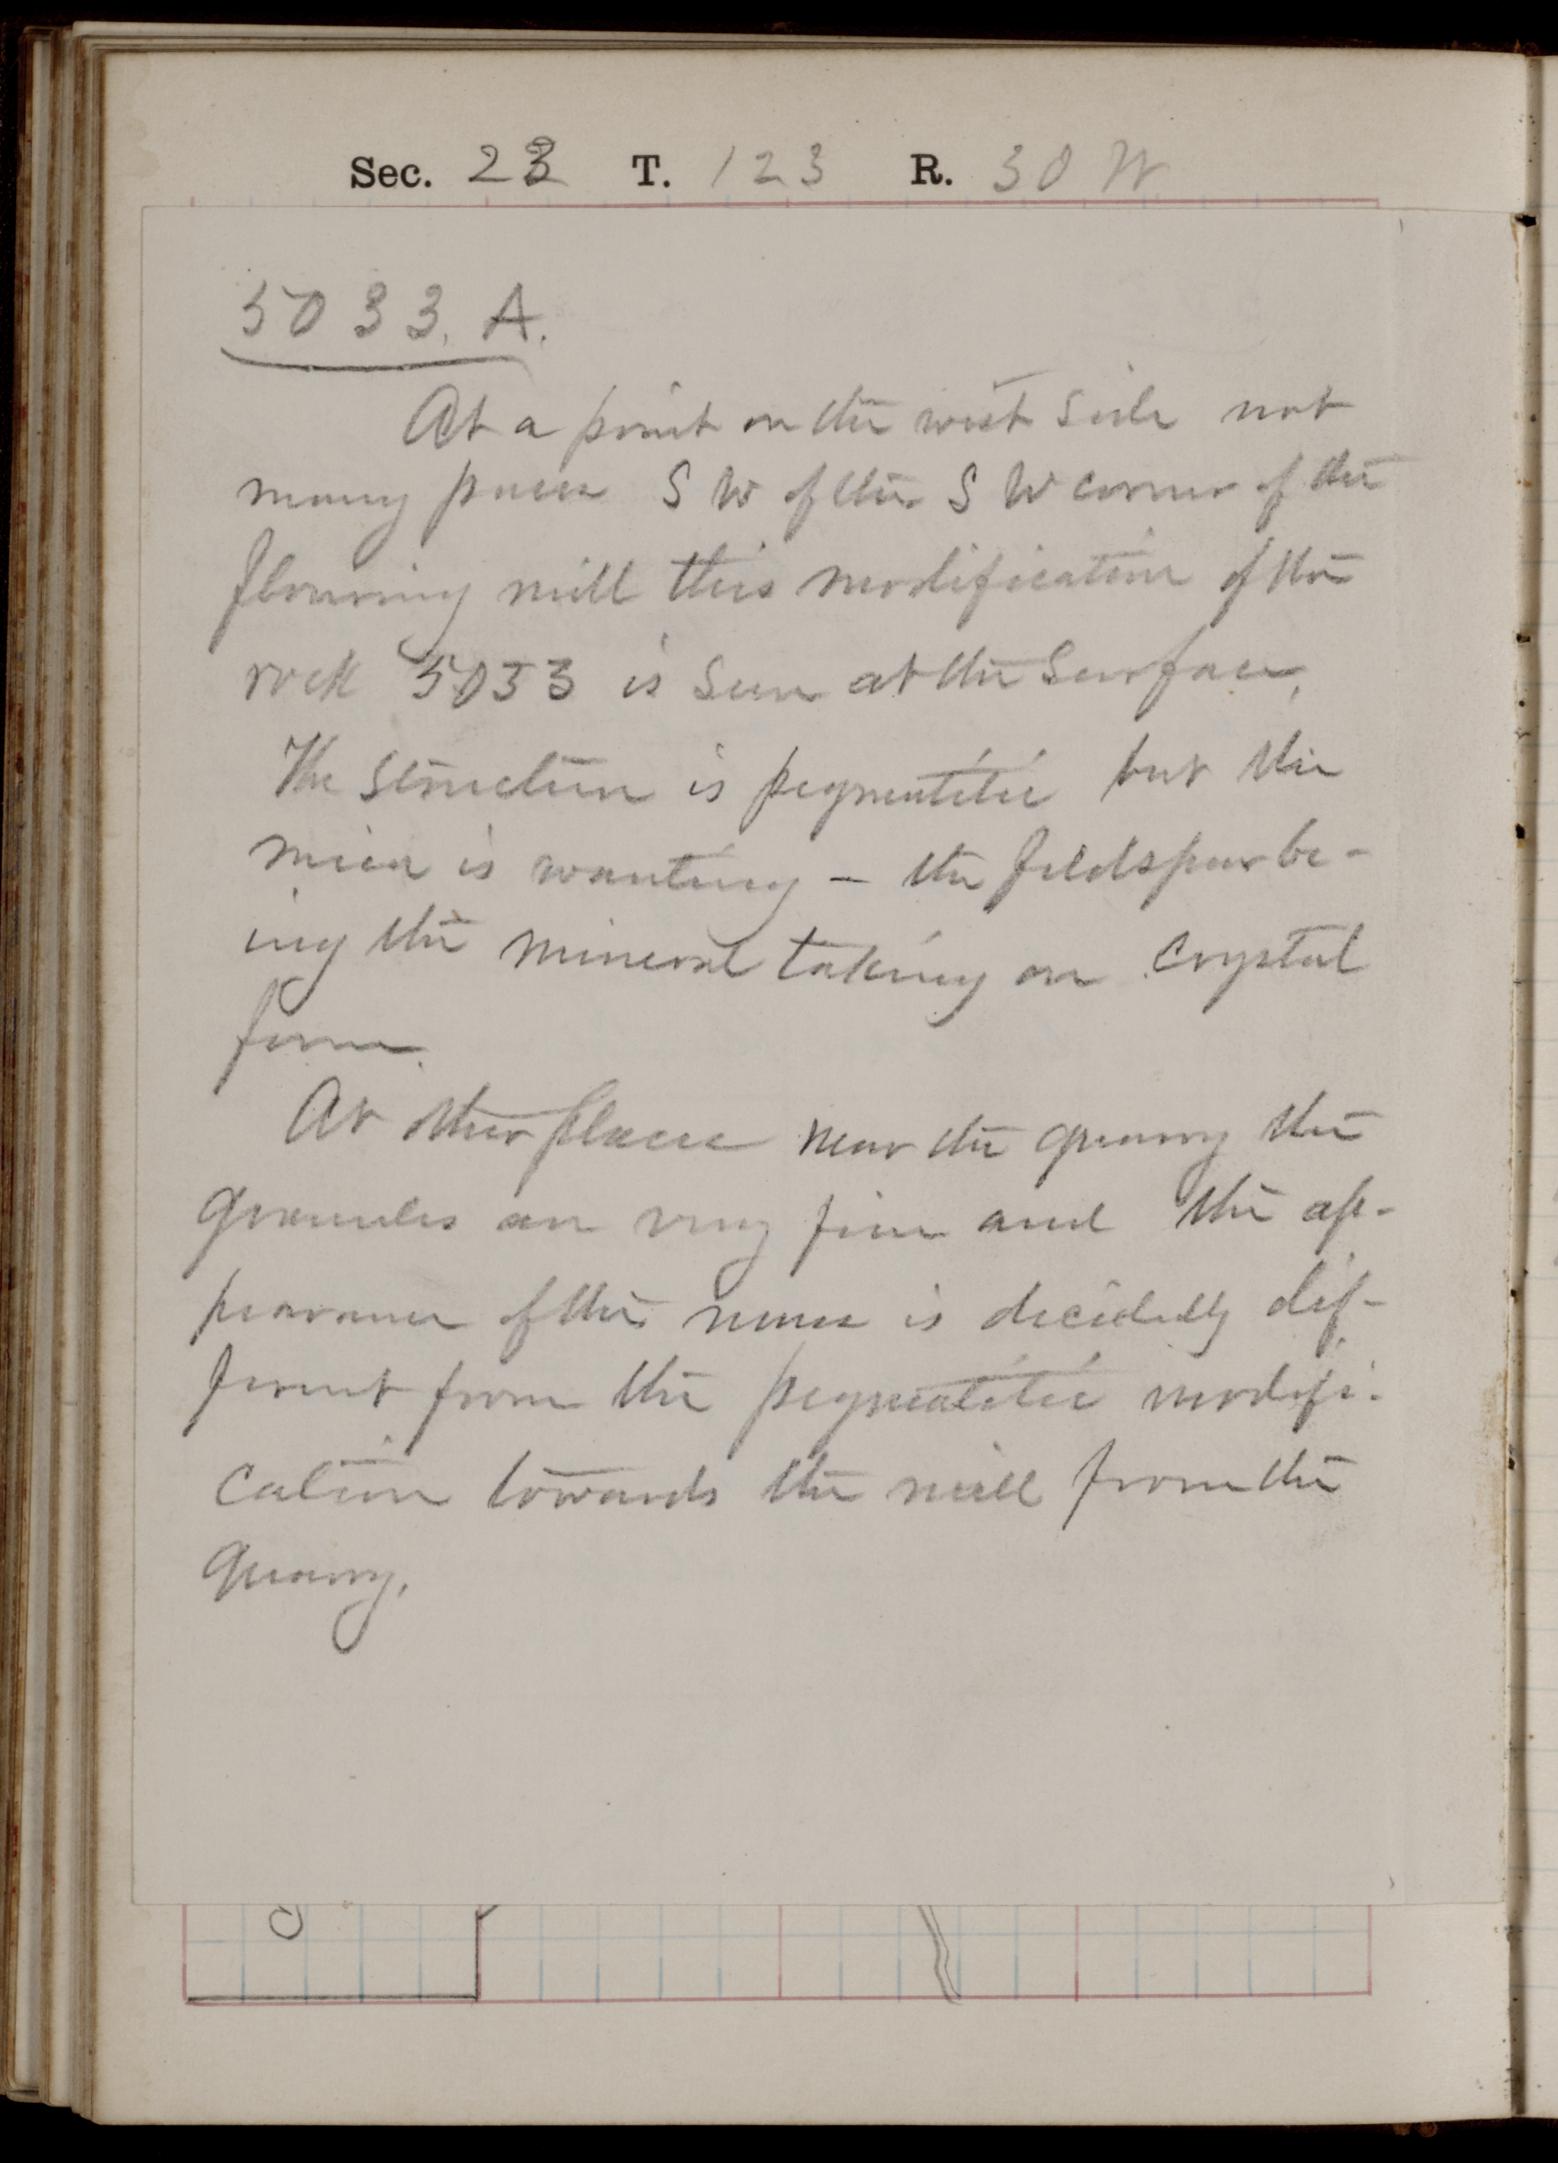 Sec. 23 T. 123 R. 30 W
5033. A.
At a point on the west side not
many paces S W of the S W corner of the
flouring mill this modification of the
rock 5033 is seen at the surface.
The structure is pegmatitic but the
mica is wanting – the feldspar be-
ing the mineral taking on crystal
form.
At other places near the quarry the
granules are very fine and the ap-
pearance of the mass is decidedly dif-
ferent from the pegmatitic modifi-
cation towards the mill from the
quarry.